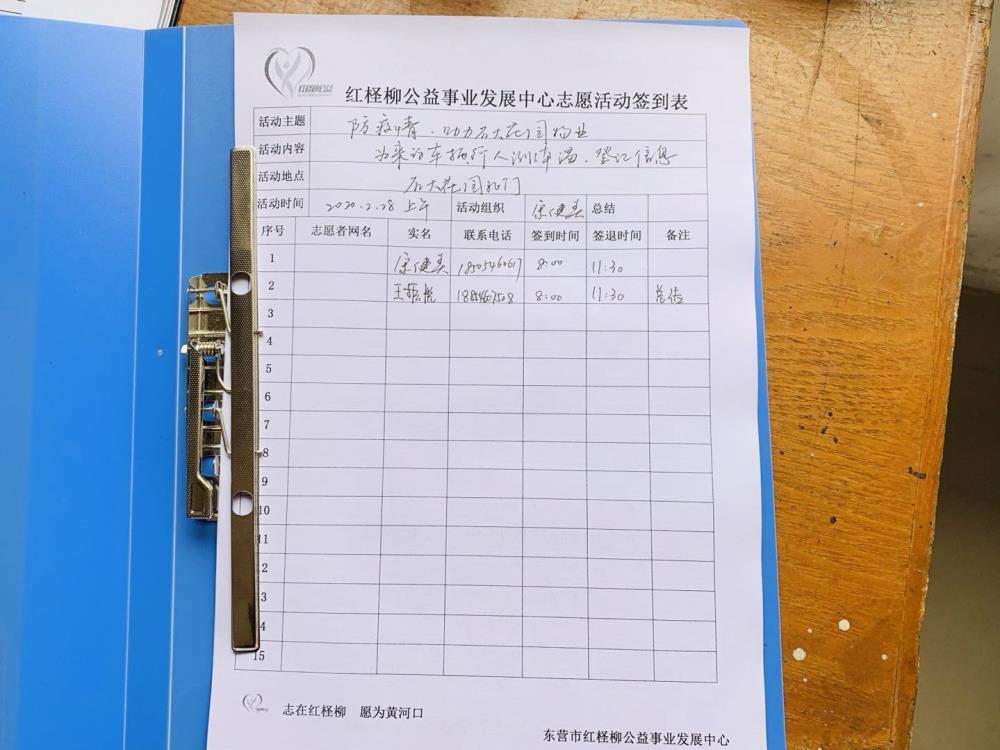 红柽柳公益
红柽柳公益事业发展中心志愿活动签到表
活动主题 防疫情、助力石大花园物业
活动内容 为来访车辆行人测体温、登记信息
活动地点 石大花园北门
活动时间 2020.2.28 上午 活动组织 宗健美 总结
序号 志愿者网名 实名 联系电话 签到时间 签退时间 备注
1 宗健美 8:00 11:30
2 王 8:00 11:30 总结
3
4
5
6
7
8
9
10
11
2
3
4
15
志在红柽柳 愿为黄河口
东营市红柽柳公益事业发展中心